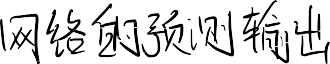 网络的预测输出